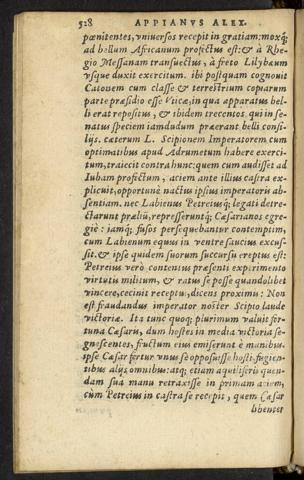 528 APPIANVS ALEX.
pœnitentes, vniuersos recepit in gratiam: mox q;
ad bellum Africanum profectus est: & à Rhe-
gio Messanam transuectus, à freto Lilybæum
vsque duxit exercitum. ibi postquam cognouit
Catonem cum classe & terrestrium copiarum
parte præsidio esse Vticæ, in qua apparatus bel-
li erat repositus, & ibidem trecentos qui in se-
natus speciem iamdudum præerant belli consi-
lijs. cæterum L. Scipionem Imperatorem cum
optimatibus apud Adrumetum habere exerci-
tum, traiecit contra hunc: quem cum audisset ad
Iubam profectum, aciem ante illius castra ex-
plicuit, opportunè nactus ipsius imperatoris ab-
sentiam. nec Labienus Petreiusq; legati detre-
ctarunt præliū, represseruntq; Cæsarianos egre-
giè: iamq; fusos persequebantur contemptim,
cum Labienum equus in ventre saucius excus-
sit. & ipse quidem suorum succursu ereptus est:
Petreius verò contentus præsenti experimento
virtutis militum, & ratus se posse quandolibet
vincere, cecinit receptui, dicens proximis: Non
est fraudandus imperator noster Scipio laude
victoriæ. Ita tunc quoq; plurimum valuit for-
tuna Cæsaris, dum hostes in media victoria se-
gnescentes, fructum eius emiserunt è manibus.
ipse Cæsar fertur vnus se opposuisse hosti fugien-
tibus alijs omnibus: atq; etiam aquiliferū quen-
dam sua manu retraxisse in primam aciem,
cum Petreius in castra se recepit, quem Cæsar
libenter